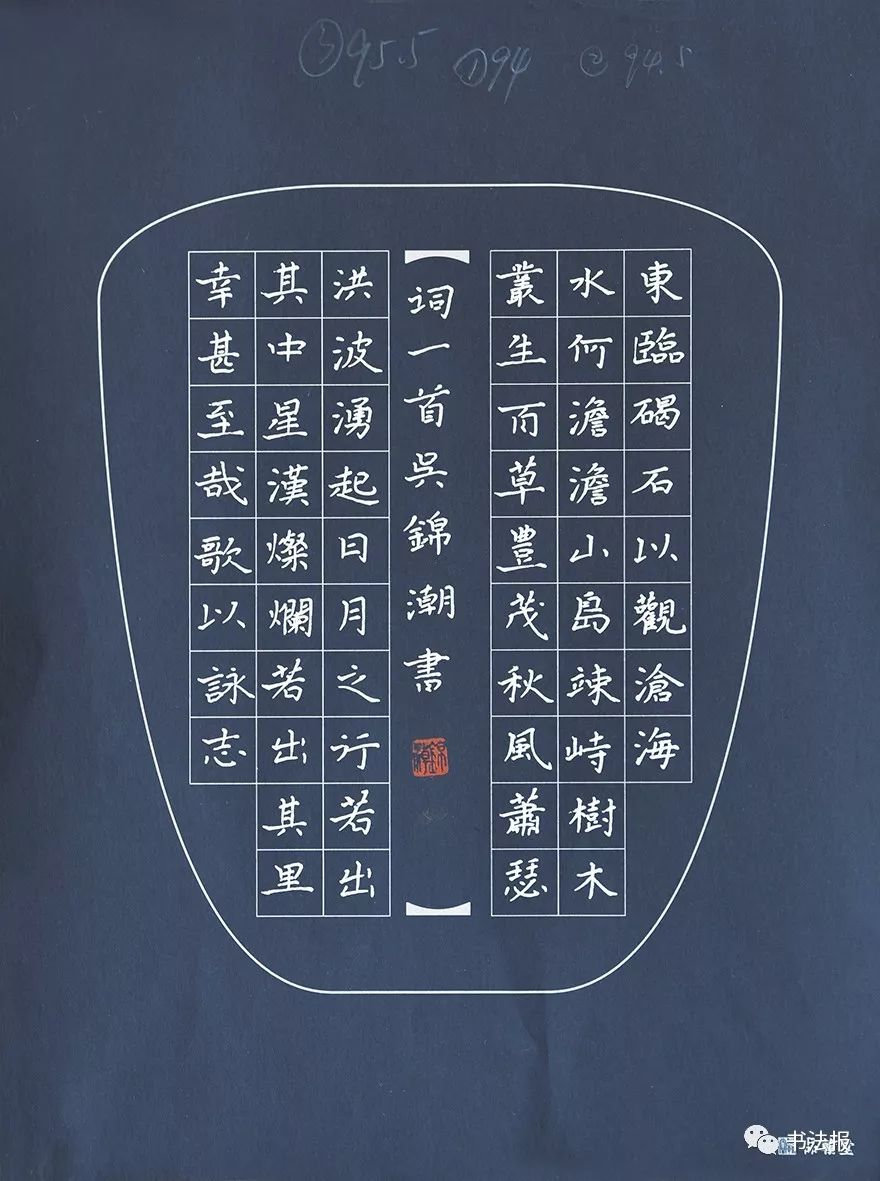 ③95.5 ①94 ②94.5
東臨碣石以觀滄海
水何澹澹山島竦峙樹木
叢生百草豊茂秋風蕭瑟
詞一首吳錦潮書
洪波湧起日月之行若出
其中星漢燦爛若出其里
幸甚至哉歌以詠志
书法报